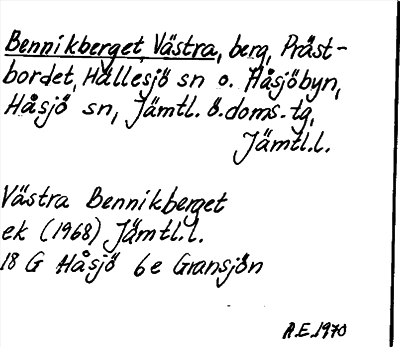 Bennikberget, Västra, berg, Präst-
bordet, Hällesjö sn o. Håsjöbyn,
Håsjö sn, Jämtl. ö. doms. tg,
Jämtl.l.
Västra Bennikberget
ek (1968) Jämtl.l.
18 G Håsjö 6e Gransjön
A.E. 1970